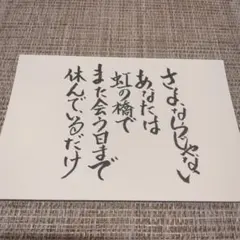 さよならじゃない
あなたは
虹の橋で
また会う日まで
休んでいるだけ